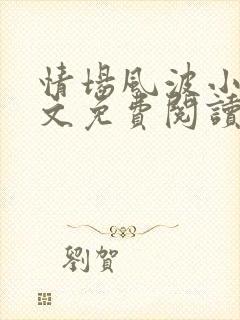 情場風波小
文免費閱讀
劉賀